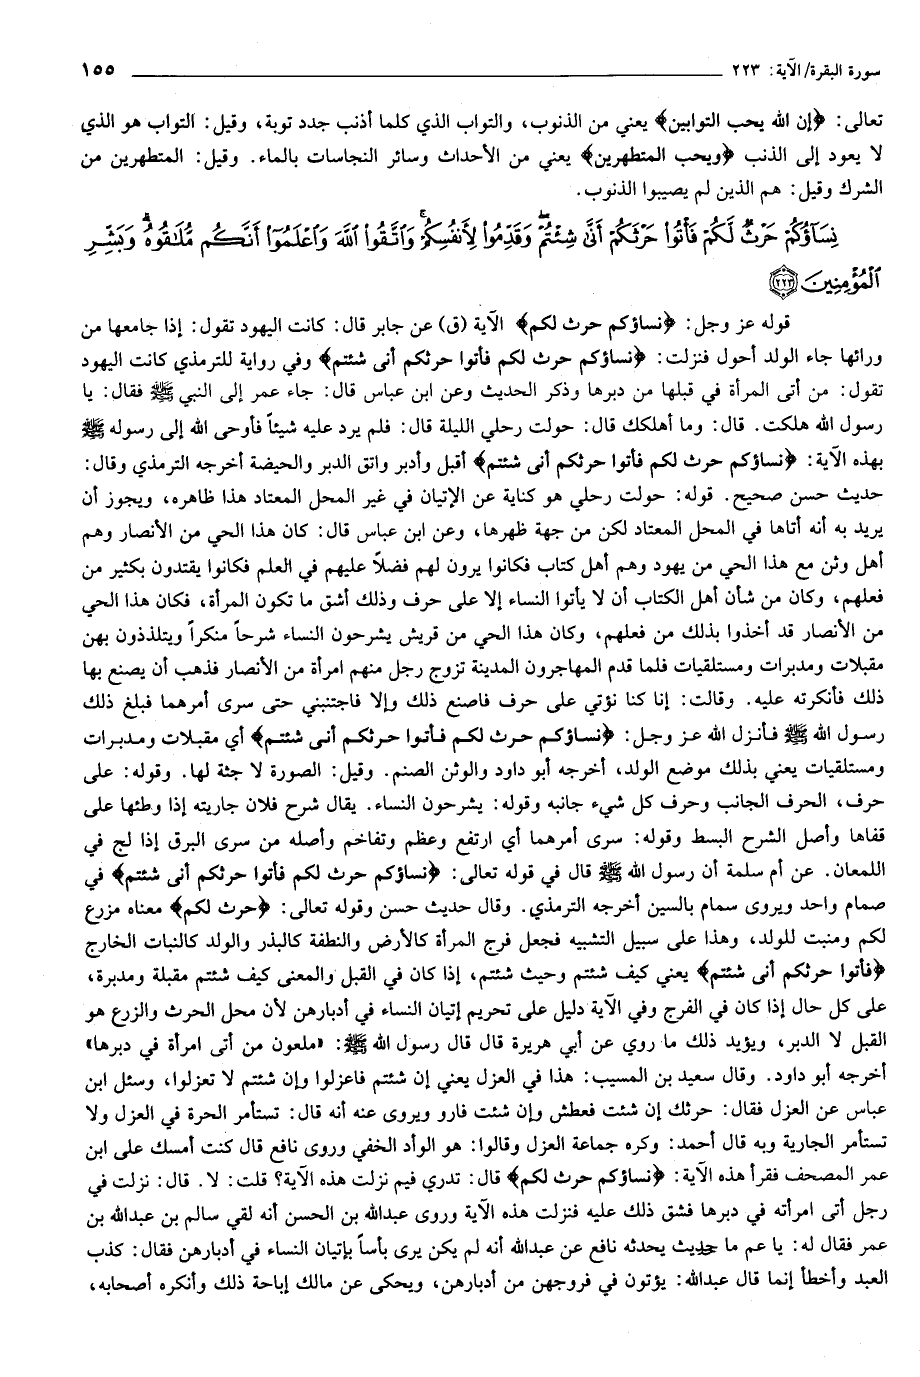 سورة البقرة/ الآية: ٢٢٣ ١٥٥
تعالى: ﴿إن الله يحب التوابين﴾ يعني من الذنوب، والتواب الذي كلما أذنب جدد توبة، وقيل: التواب هو الذي
لا يعود إلى الذنب ﴿ويحب المتطهرين﴾ يعني من الأحداث وسائر النجاسات بالماء. وقيل: المتطهرين من
الشرك وقيل: هم الذين لم يصيبوا الذنوب.
نِسَآؤُكُمْ حَرْثٌ لَّكُمْ فَأْتُوا۟ حَرْثَكُمْ أَنَّىٰ شِئْتُمْ ۖ وَقَدِّمُوا۟ لِأَنفُسِكُمْ ۚ وَٱتَّقُوا۟ ٱللَّهَ وَٱعْلَمُوٓا۟ أَنَّكُم مُّلَـٰقُوهُ ۗ وَبَشِّرِ
ٱلْمُؤْمِنِينَ ٢٢٣
قوله عز وجل: ﴿نساؤكم حرث لكم﴾ الآية (ق) عن جابر قال: كانت اليهود تقول: إذا جامعها من
ورائها جاء الولد أحول فنزلت: ﴿نساؤكم حرث لكم فأتوا حرثكم أنى شئتم﴾ وفي رواية للترمذي كانت اليهود
تقول: من أتى المرأة في قبلها من دبرها وذكر الحديث وعن ابن عباس قال: جاء عمر إلى النبي ﷺ فقال: يا
رسول الله هلكت. قال: وما أهلكك قال: حولت رحلي الليلة قال: فلم يرد عليه شيئاً فأوحى الله إلى رسوله ﷺ
بهذه الآية: ﴿نساؤكم حرث لكم فأتوا حرثكم أنى شئتم﴾ أقبل وأدبر واتق الدبر والحيضة أخرجه الترمذي وقال:
حديث حسن صحيح. قوله: حولت رحلي هو كناية عن الإتيان في غير المحل المعتاد هذا ظاهره، ويجوز أن
يريد به أنه أتاها في المحل المعتاد لكن من جهة ظهرها، وعن ابن عباس قال: كان هذا الحي من الأنصار وهم
أهل وثن مع هذا الحي من يهود وهم أهل كتاب فكانوا يرون لهم فضلاً عليهم في العلم فكانوا يقتدون بكثير من
فعلهم، وكان من شأن أهل الكتاب أن لا يأتوا النساء إلا على حرف وذلك أشق ما تكون المرأة، فكان هذا الحي
من الأنصار قد أخذوا بذلك من فعلهم، وكان هذا الحي من قريش يشرحون النساء شرحاً منكراً ويتلذذون بهن
مقبلات ومدبرات ومستلقيات فلما قدم المهاجرون المدينة تزوج رجل منهم امرأة من الأنصار فذهب أن يصنع بها
ذلك فأنكرته عليه. وقالت: إنا كنا نؤتي على حرف فاصنع ذلك وإلا فاجتنبني حتى سرى أمرهما فبلغ ذلك
رسول الله ﷺ فأنزل الله عز وجل: ﴿نساؤكم حرث لكم فأتوا حرثكم أنى شئتم﴾ أي مقبلات ومدبرات
ومستلقيات يعني بذلك موضع الولد، أخرجه أبو داود والوثن الصنم. وقيل: الصورة لا جثة لها. وقوله: على
حرف، الحرف الجانب وحرف كل شيء جانبه وقوله: يشرحون النساء. يقال شرح فلان جاريته إذا وطئها على
قفاها وأصل الشرح البسط وقوله: سرى أمرهما أي ارتفع وعظم وتفاخم وأصله من سرى البرق إذا لج في
اللمعان. عن أم سلمة أن رسول الله ﷺ قال في قوله تعالى: ﴿نساؤكم حرث لكم فأتوا حرثكم أنى شئتم﴾ في
صمام واحد ويروى سمام بالسين أخرجه الترمذي. وقال حديث حسن وقوله تعالى: ﴿حرث لكم﴾ معناه مزرع
لكم ومنبت للولد، وهذا على سبيل التشبيه فجعل فرج المرأة كالأرض والنطفة كالبذر والولد كالنبات الخارج
﴿فأتوا حرثكم أنى شئتم﴾ يعني كيف شئتم وحيث شئتم، إذا كان في القبل والمعنى كيف شئتم مقبلة ومدبرة،
على كل حال إذا كان في الفرج وفي الآية دليل على تحريم إتيان النساء في أدبارهن لأن محل الحرث والزرع هو
القبل لا الدبر، ويؤيد ذلك ما روي عن أبي هريرة قال قال رسول الله ﷺ: «ملعون من أتى امرأة في دبرها»
أخرجه أبو داود. وقال سعيد بن المسيب: هذا في العزل يعني إن شئتم فاعزلوا وإن شئتم لا تعزلوا، وسئل ابن
عباس عن العزل فقال: حرثك إن شئت فعطش وإن شئت فارو ويروى عنه أنه قال: تستأمر الحرة في العزل ولا
تستأمر الجارية وبه قال أحمد: وكره جماعة العزل وقالوا: هو الوأد الخفي وروى نافع قال كنت أمسك على ابن
عمر المصحف فقرأ هذه الآية: ﴿نساؤكم حرث لكم﴾ قال: تدري فيم نزلت هذه الآية؟ قلت: لا. قال: نزلت في
رجل أتى امرأته في دبرها فشق ذلك عليه فنزلت هذه الآية وروى عبدالله بن الحسن أنه لقي سالم بن عبدالله بن
عمر فقال له: يا عم ما حديث يحدثه نافع عن عبدالله أنه لم يكن يرى بأساً بإتيان النساء في أدبارهن فقال: كذب
العبد وأخطأ إنما قال عبدالله: يؤتون في فروجهن من أدبارهن، ويحكى عن مالك إباحة ذلك وأنكره أصحابه،